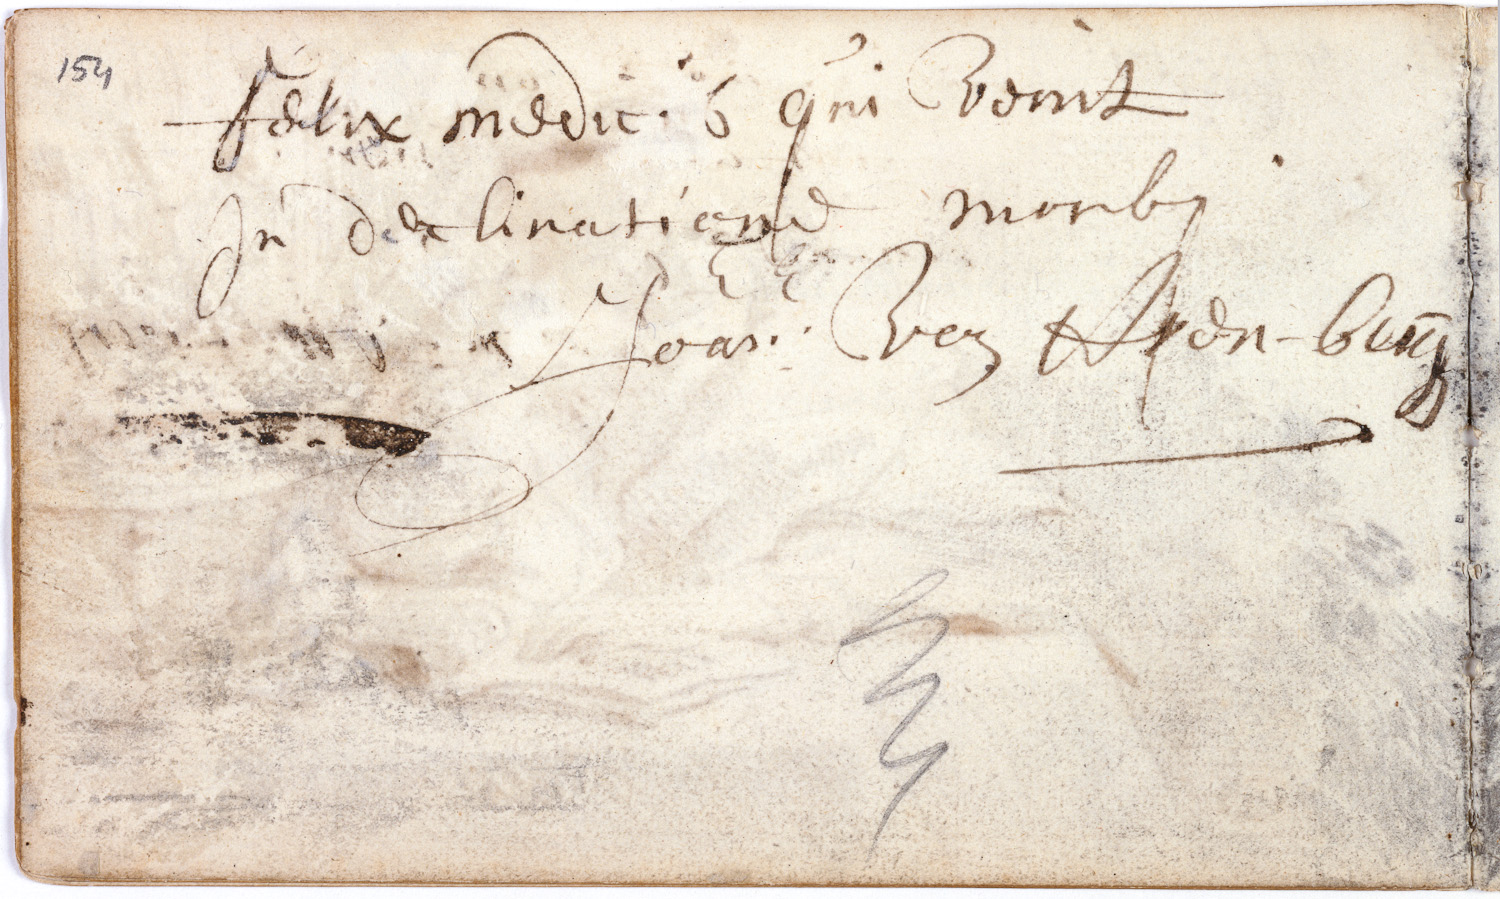 154
Felix medic.us qui venit
In declinatione morbi
Joan: Ver